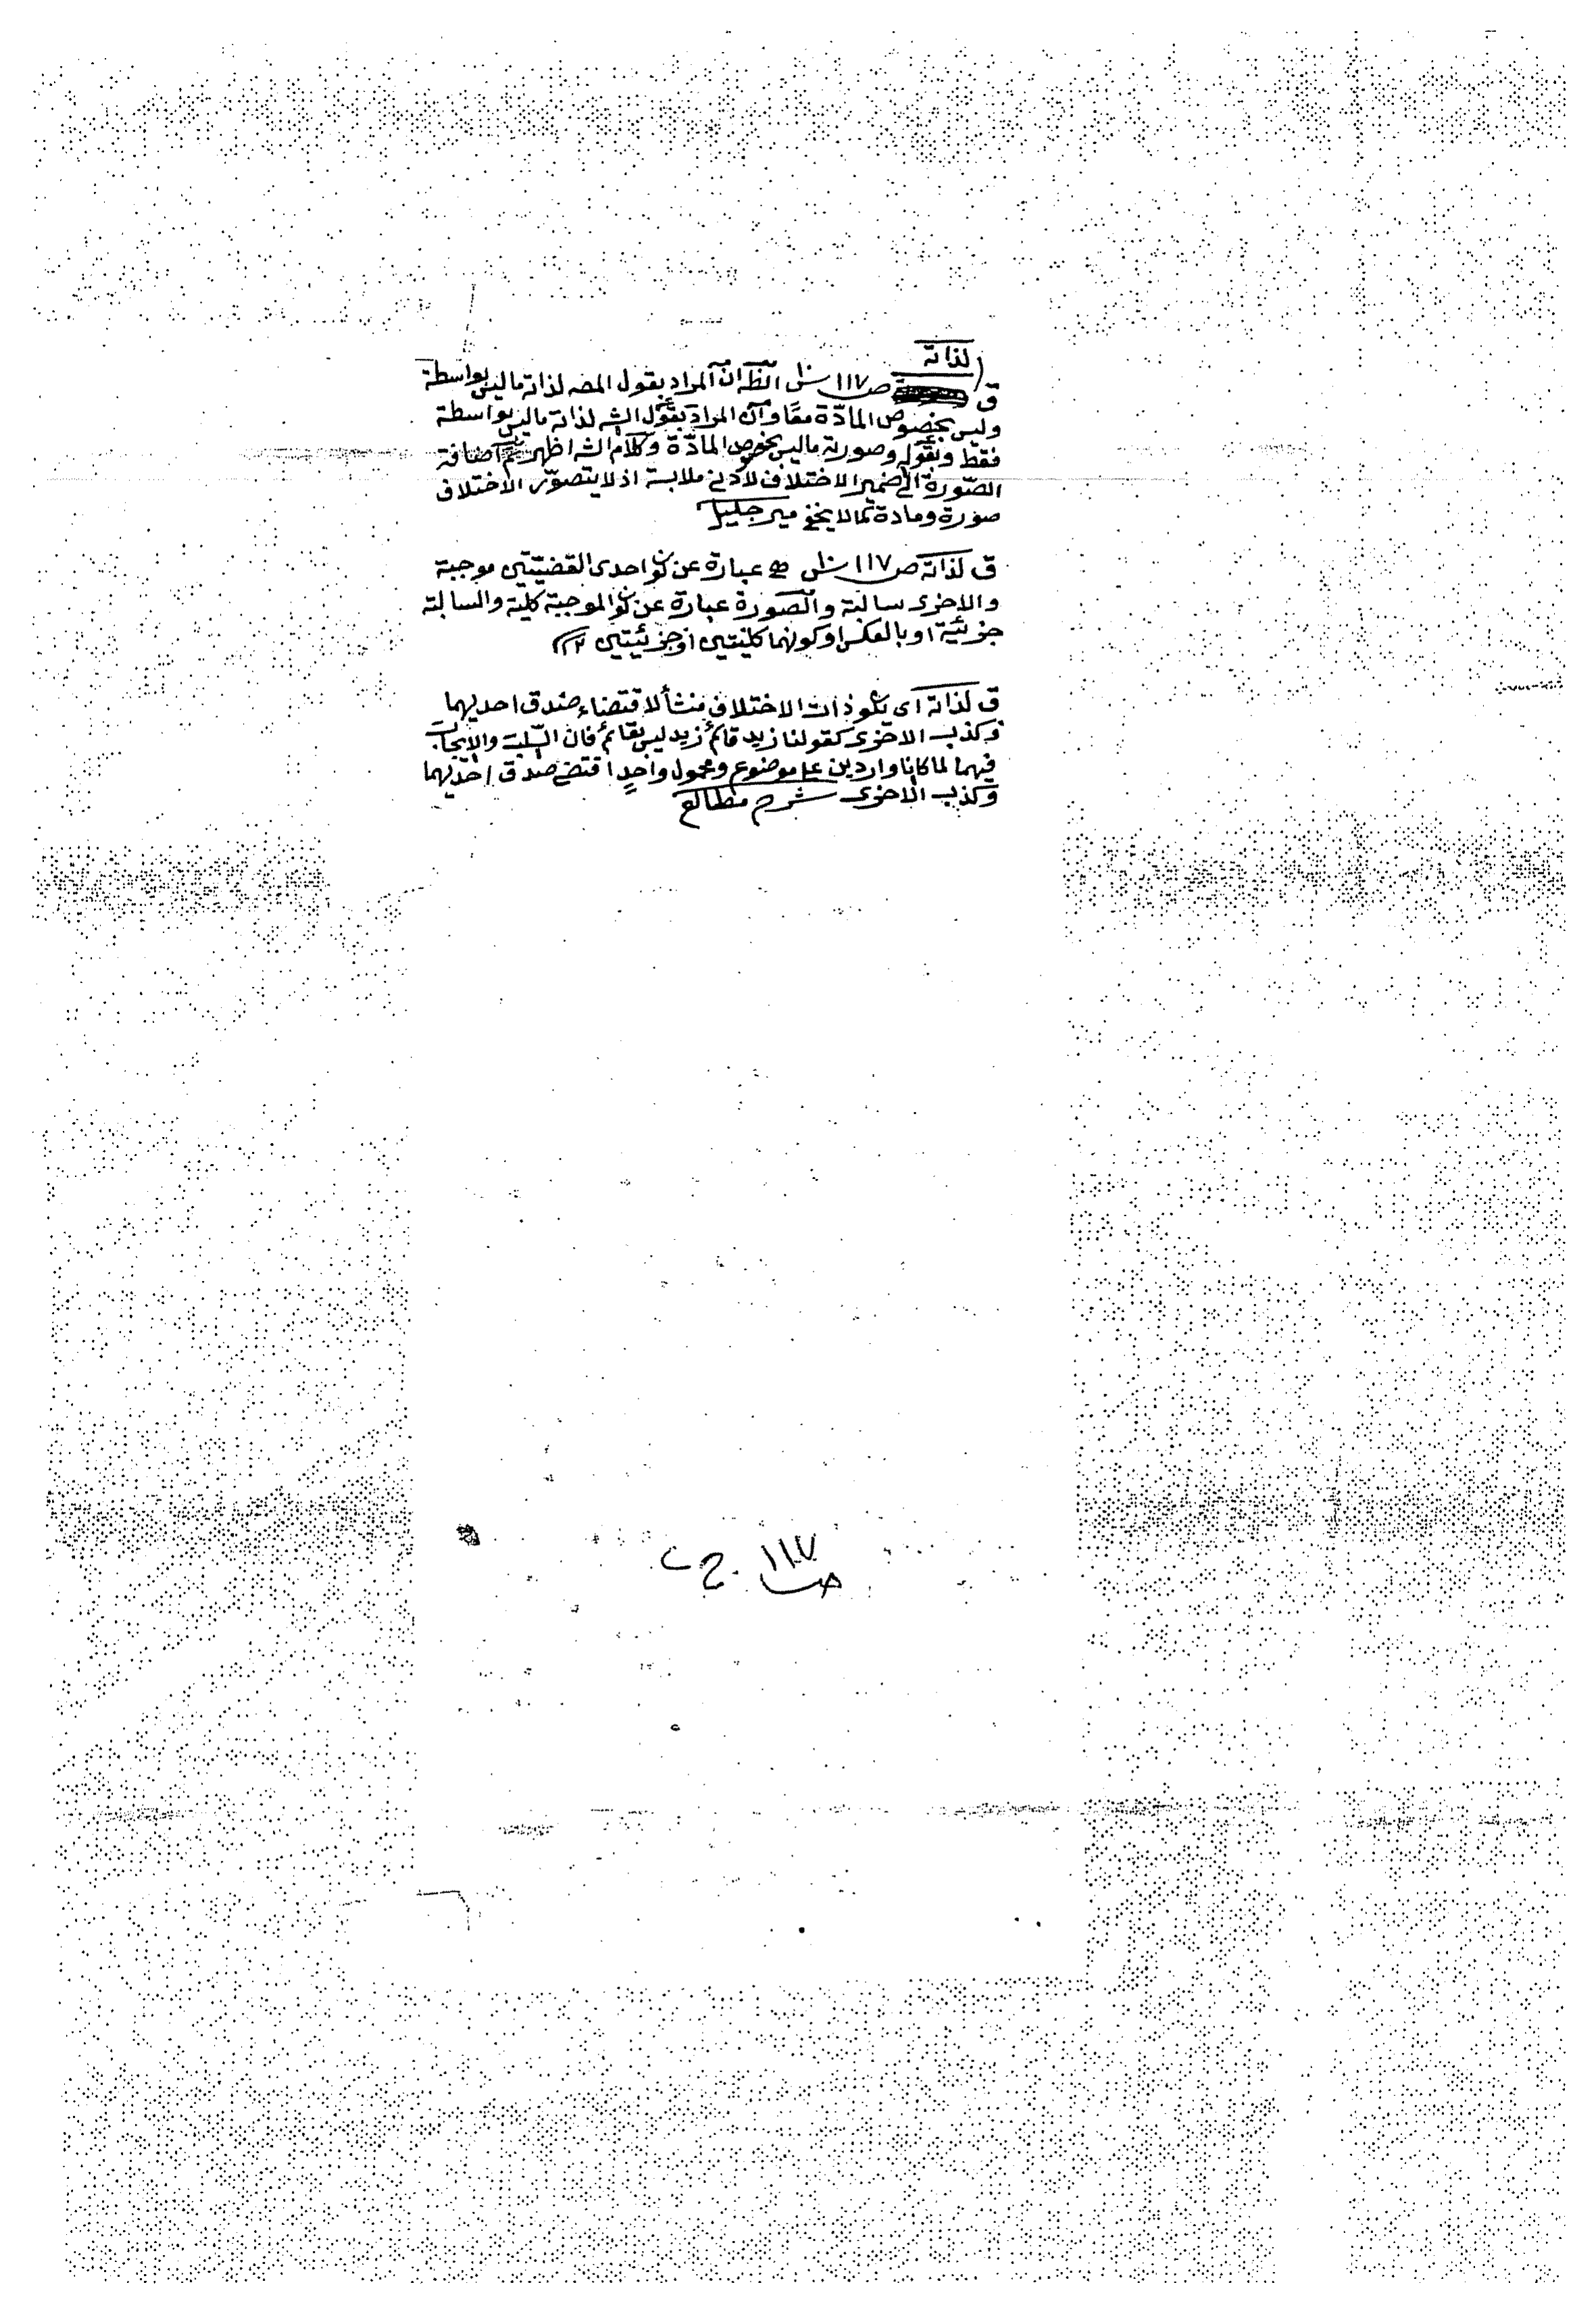 لذاته
ق ص ١١٧ س١٠ الظ ان المراد بقول المصه لذاته ما ليس بواسطة
وليس بخصوص المادّة معًا وان المراد بقول الشه لذاته ما ليس بواسطة
فقط وبقوله وصورته ما ليس بخصوص المادّة وكلام الشه اظهر ثم اضافة
الصّورة الى ضمير الاختلاف لادنى ملابسة اذ لا يتصوّر الاختلاف
صورة ومادة كما لا يخفى مير جليل
ق لذاته ص ١١٧ س١٠ هى عبارة عن كون احدى القضيّتين موجبة
والاخرى سالبة والصورة عبارة عن كون الموجبة كلية والسالبة
جزئية او بالعكس او كونهما كليتين او جزئيتين
ق لذاته اى يكون ذات الاختلاف منشأ لاقتضاء صدق احديهما
وكذب الاخرى كقولنا زيد قائم زيد ليس بقائم فان السّلب والايجاب
فيهما لما كانا واردين على موضوع ومحمول واحدٍ اقتضى صدق احديهما
وكذب الاخرى شرح مطالع
ص ١١٧